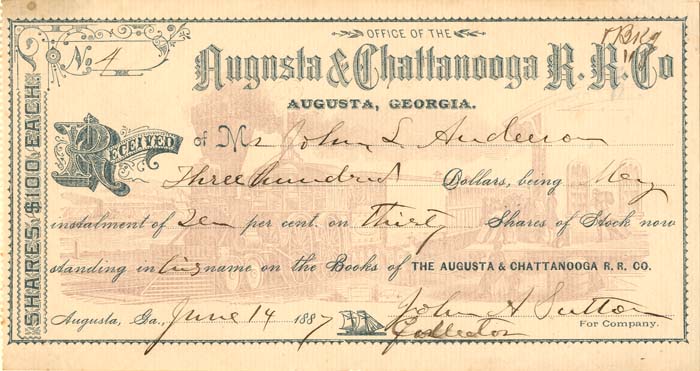 OFFICE OF THE
No 4
Augusta & Chattanooga R. R. Co
AUGUSTA, GEORGIA.
SHARES, $100 EACH
RECEIVED of Mr John L Anderson
Three hundred Dollars, being May
instalment of Ten per cent. on thirty Shares of Stock now
standing in his name on the Books of THE AUGUSTA & CHATTANOOGA R. R. CO.
Augusta, Ga., June 14 1887 John A Sutton
Collector For Company.